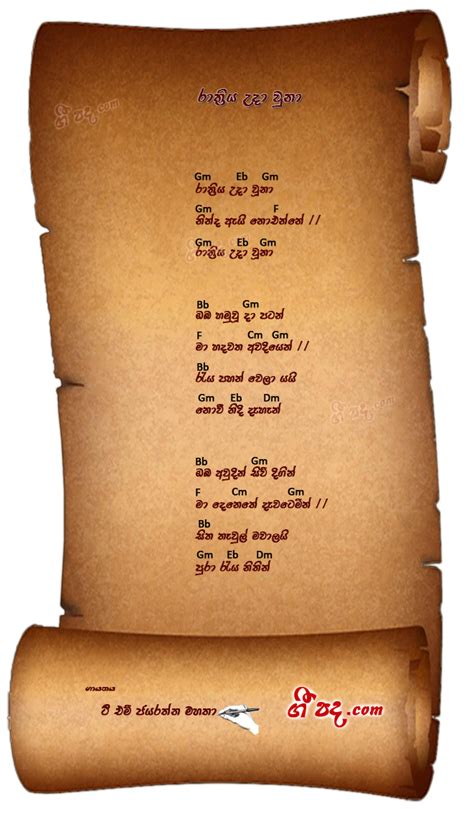 රාත්‍රිය උදා වූනා
ගී පද.com
Gm Eb Gm
රාත්‍රිය උදා වූනා
Gm F
නින්ද ඇයි නොඑන්නේ //
Gm Eb Gm
රාත්‍රිය උදා වූනා
Bb Gm
ඔබ හමුවූ දා පටන්
F Cm Gm
මා හදවත අවදියෙන් //
Bb
රැය පහන් වෙලා යයි
Gm Eb Dm
නොවී නිදි දෑහැන්
Bb Gm
ඔබ අවුදින් සිව් දිගින්
F Cm Gm
මා දෙනෙතේ දැවටෙමින් //
Bb
සිත තැවුල් මවාලයි
Gm Eb Dm
පුරා රැය තිතින්
ගායනය
ටී එම් ජයරත්න මහතා
ගී පද.com